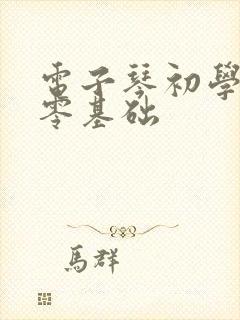 電子琴初學
零基础
馬群